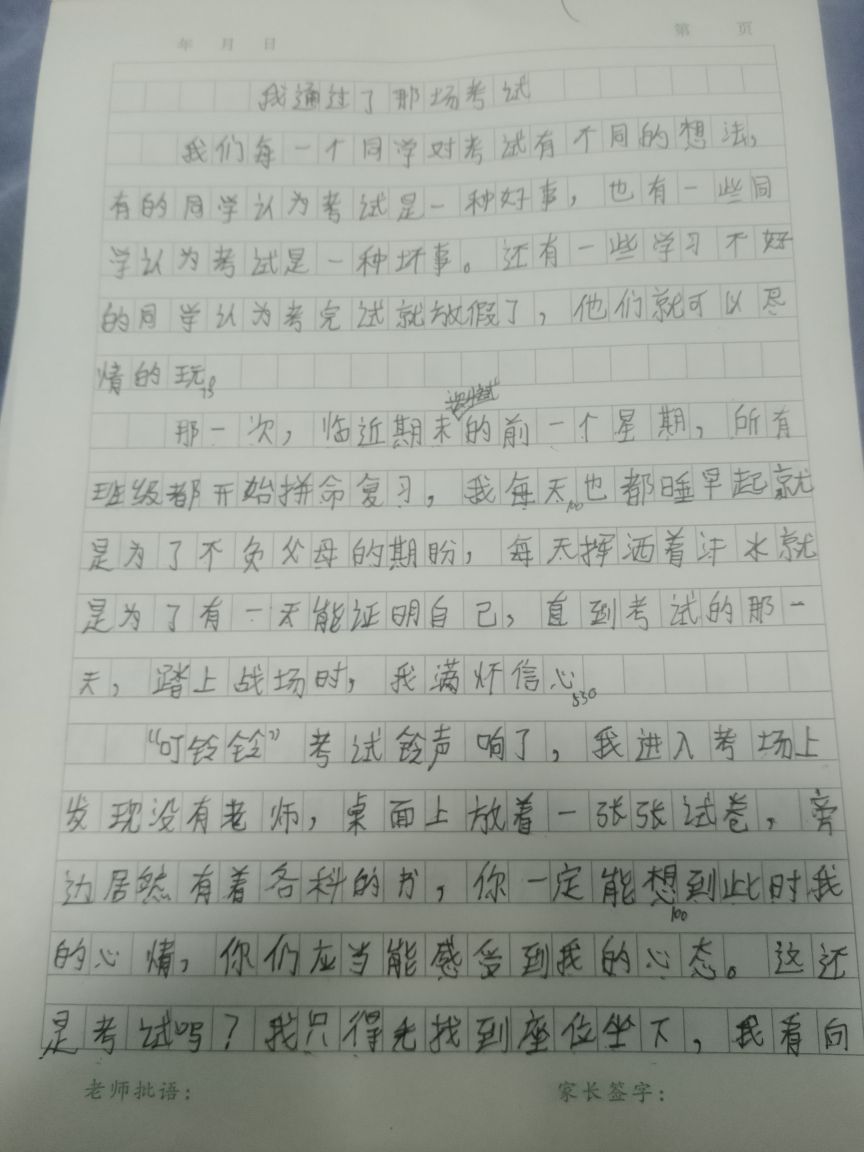 年 月 日 第 页
我通过了那场考试
我们每一个同学对考试有不同的想法,
有的同学认为考试是一种好事，也有一些同
学认为考试是一种坏事。还有一些学习不好
的同学认为考完试就放假了，他们就可以尽
情的玩。
那一次，临近期末的前一个星期，所有
班级都开始拼命复习，我每天也都睡早起就
100
是为了不负父母的期盼，每天挥洒着汗水就
是为了有一天能证明自己，直到考试的那一
天，踏上战场时，我满怀信心。
“叮铃铃”考试铃声响了，我进入考场上
发现没有老师，桌面上放着一张张试卷，旁
边居然有着各科的书，你一定能想到此时我
100
的心情，你们应当能感受到我的心态。这还
是考试吗？我只得先找到座位坐下，我看向
老师批语： 家长签字：